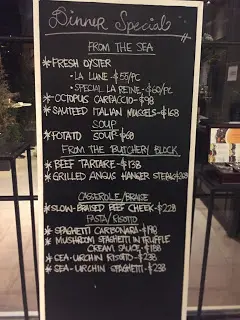 Dinner Special
FROM THE SEA
* FRESH OYSTER
• LA LUNE - $55/PC
• SPECIAL LA REINE - $60/PC
* OCTOPUS CARPACCIO - $98
* SAUTEED ITALIAN MUSSELS - $168
SOUP
* POTATO SOUP $60
FROM THE BUTCHERY BLOCK
* BEEF TARTARE - $138
* GRILLED ANGUS HANGER STEAK
CASSEROLE/BRAISE
* SLOW-BRAISED BEEF CHEEK - $228
PASTA/RISOTTO
* SPAGHETTI CARBONARA -
* MUSHROOM SPAGHETTI IN TRUFFLE
CREAM SAUCE - $188
* SEA-URCHIN RISOTTO - $238
* SEA-URCHIN SPAGHETTI - $238